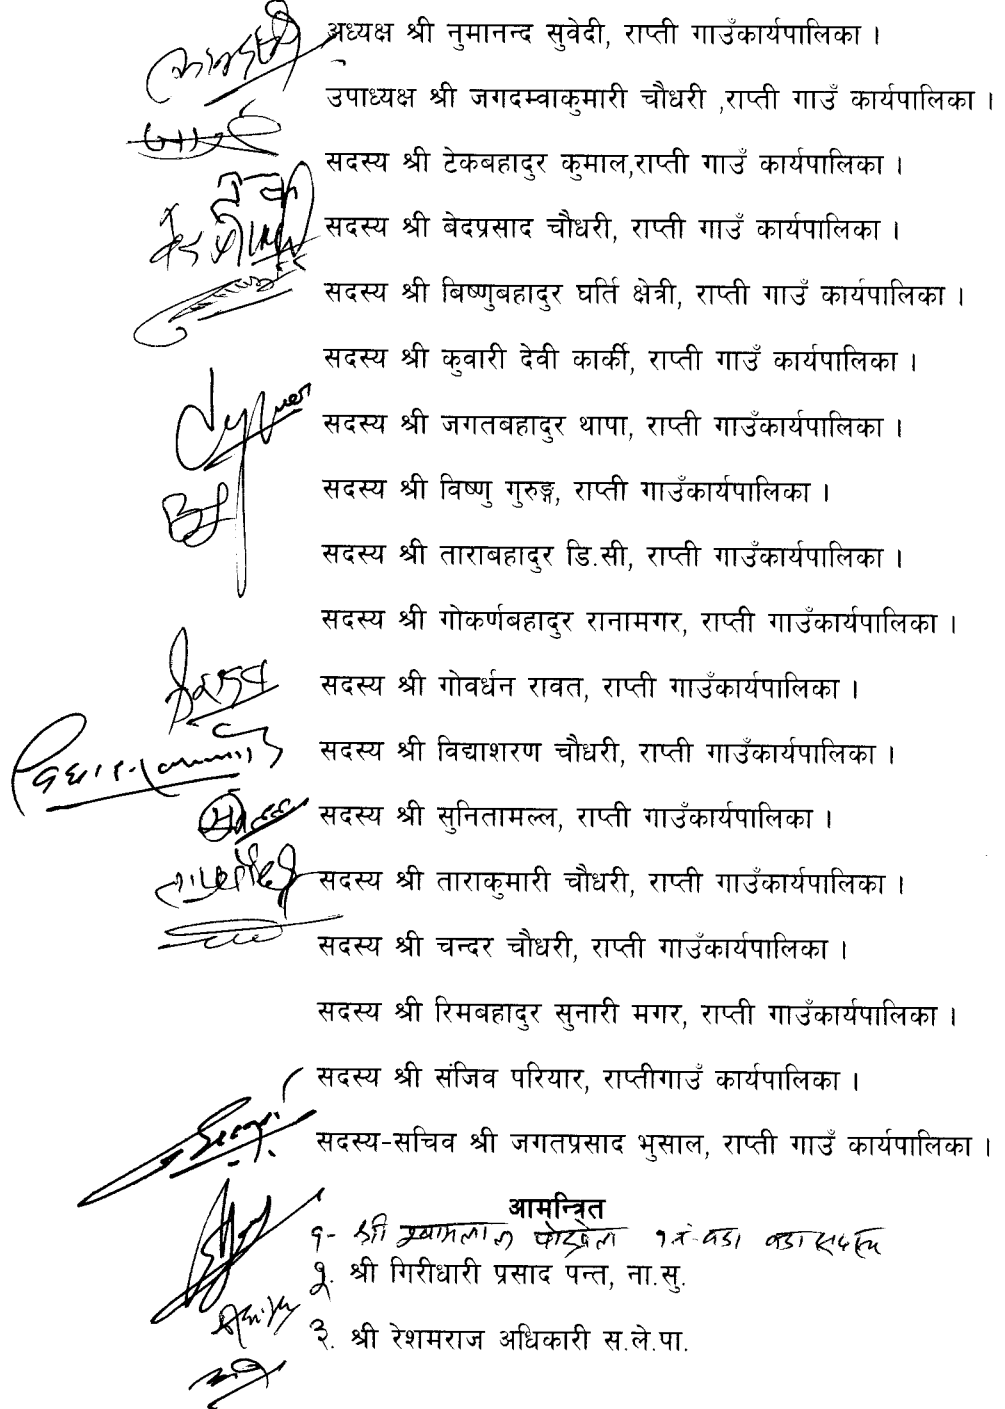 अध्यक्ष श्री नुमानन्द सुवेदी, राप्ती गाउँकार्यपालिका ।
उपाध्यक्ष श्री जगदम्वाकुमारी चौधरी ,राप्ती गाउँ कार्यपालिका ।
सदस्य श्री टेकबहादुर कुमाल,राप्ती गाउँ कार्यपालिका ।
सदस्य श्री बेदप्रसाद चौधरी, राप्ती गाउँ कार्यपालिका ।
सदस्य श्री बिष्णुबहादुर घर्ति क्षेत्री, राप्ती गाउँ कार्यपालिका ।
सदस्य श्री कुवारी देवी कार्की, राप्ती गाउँ कार्यपालिका ।
सदस्य श्री जगतबहादुर थापा, राप्ती गाउँकार्यपालिका ।
सदस्य श्री विष्णु गुरुङ्ग, राप्ती गाउँकार्यपालिका ।
सदस्य श्री ताराबहादुर डि.सी, राप्ती गाउँकार्यपालिका ।
सदस्य श्री गोकर्णबहादुर रानामगर, राप्ती गाउँकार्यपालिका ।
सदस्य श्री गोवर्धन रावत, राप्ती गाउँकार्यपालिका ।
सदस्य श्री विद्याशरण चौधरी, राप्ती गाउँकार्यपालिका ।
सदस्य श्री सुनितामल्ल, राप्ती गाउँकार्यपालिका ।
सदस्य श्री ताराकुमारी चौधरी, राप्ती गाउँकार्यपालिका ।
सदस्य श्री चन्दर चौधरी, राप्ती गाउँकार्यपालिका ।
सदस्य श्री रिमबहादुर सुनारी मगर, राप्ती गाउँकार्यपालिका ।
सदस्य श्री संजिव परियार, राप्तीगाउँ कार्यपालिका ।
सदस्य-सचिव श्री जगतप्रसाद भुसाल, राप्ती गाउँ कार्यपालिका ।
आमन्त्रित
१- श्री श्यामलाल पोख्रेल १ नं. वडा वडा सदस्य
२. श्री गिरीधारी प्रसाद पन्त, ना.सु.
३. श्री रेशमराज अधिकारी स.ले.पा.